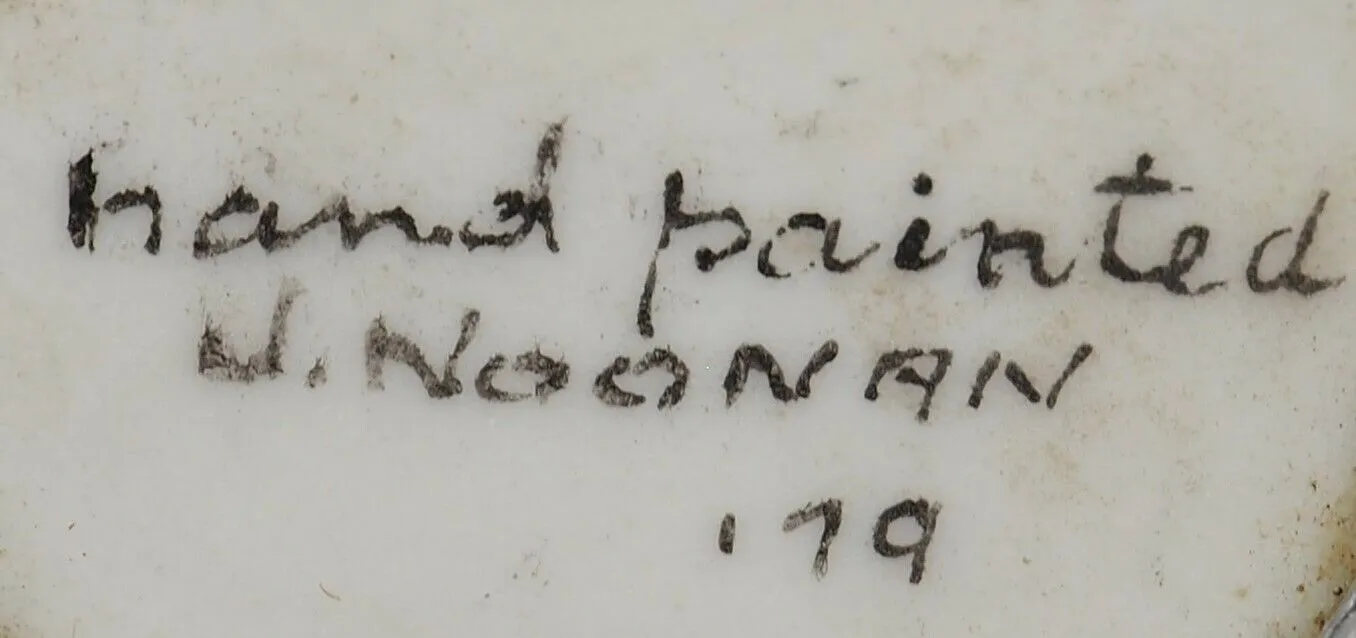 hand painted
J. NOONAN
'79